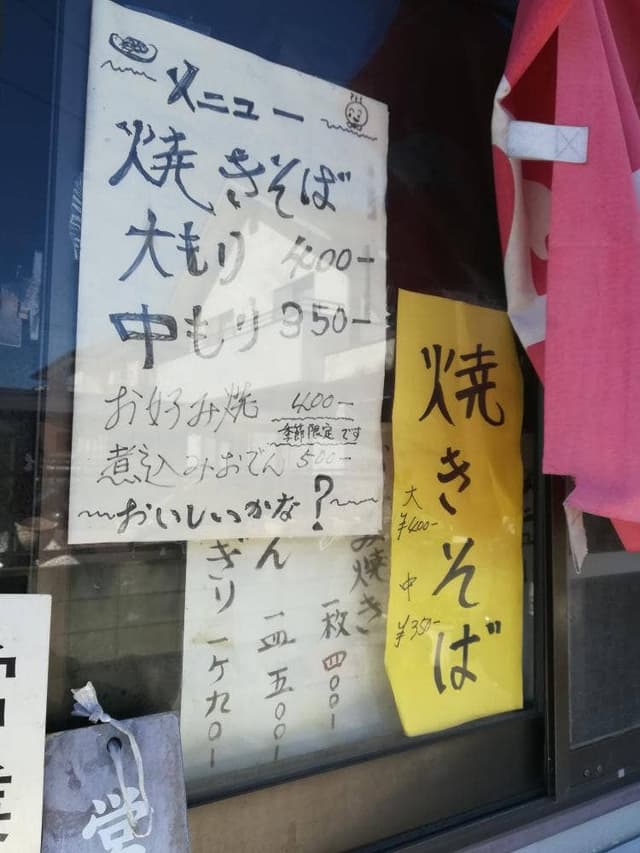 メニュー
焼きそば
大もり 400-
中もり 350-
お好み焼 400-
季節限定です
煮込みおでん 500-
～おいしいかな？～
焼きそば
大 ¥400-
中 ¥350-
み焼き 一枚 四〇〇-
ん 一皿 五〇〇-
ぎり 一ケ 九〇-
営